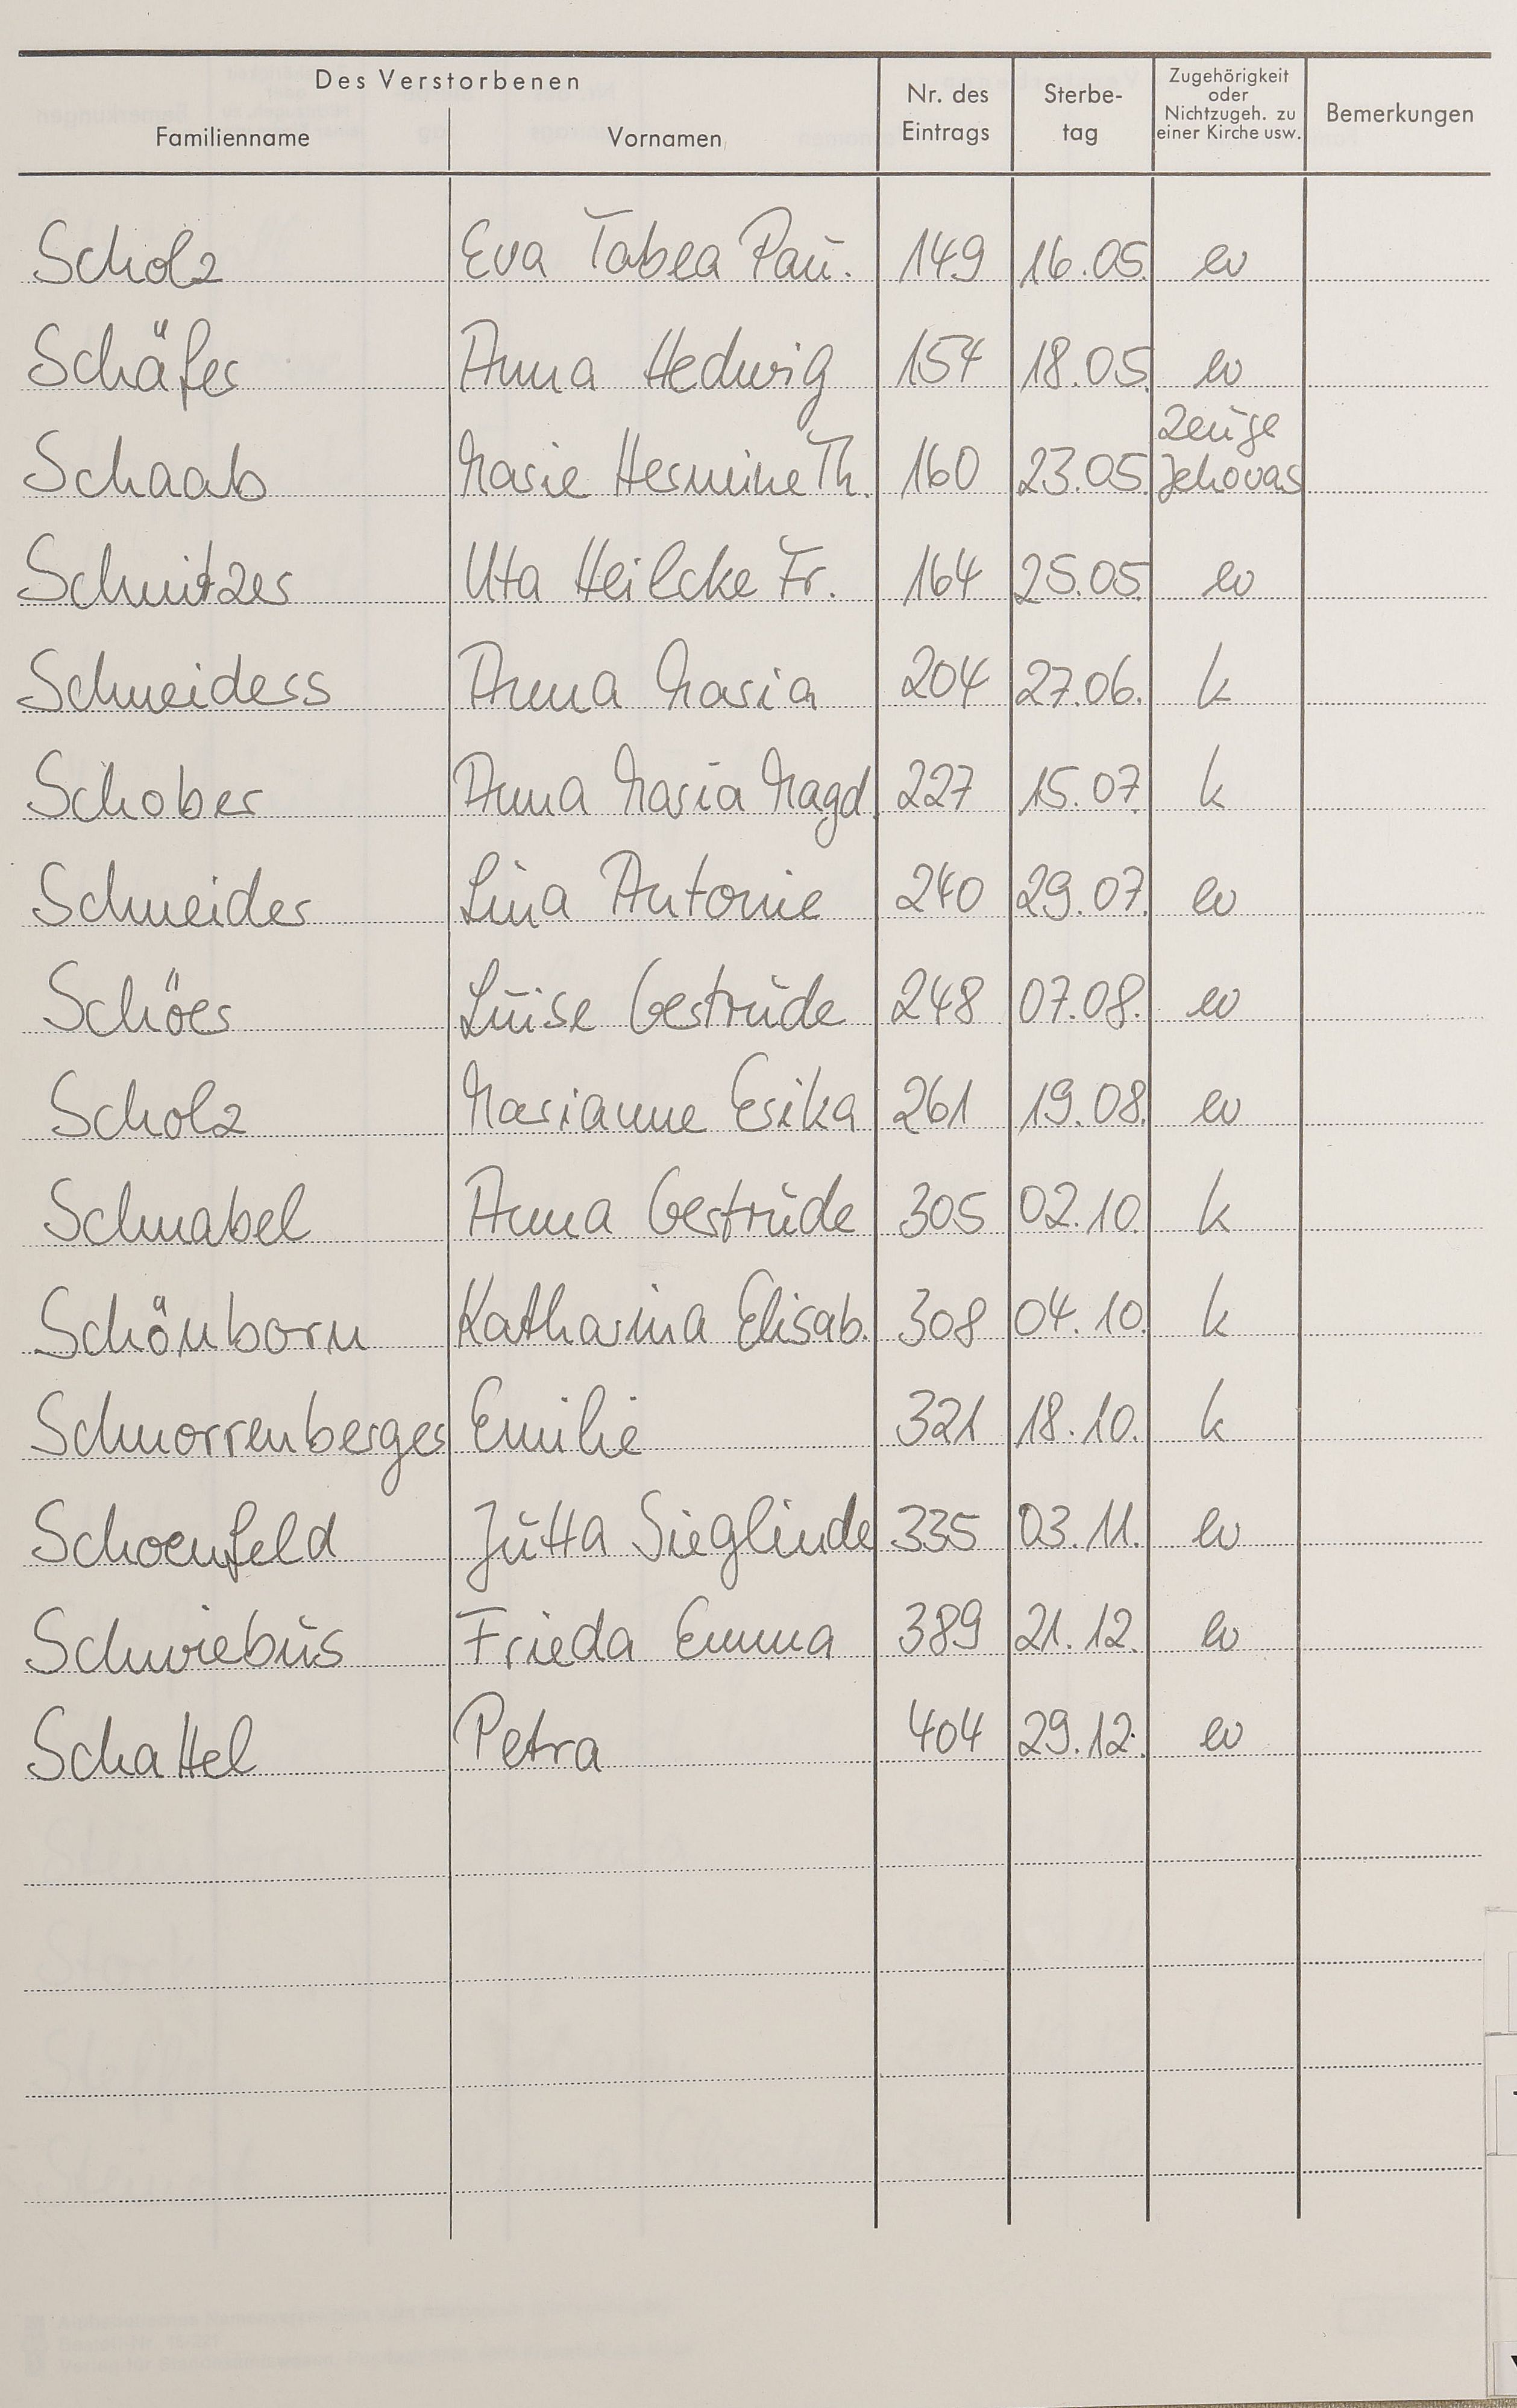 Des Verstorbenen
Familienname Vornamen Nr. des Eintrags Sterbe-tag Zugehörigkeit oder Nichtzugeh. zu einer Kirche usw. Bemerkungen
Scholz Eva Tabea Pau. 149 16.05. ev
Schäfer Anna Hedwig 154 18.05. ev
Schaab Marie Hermine Th. 160 23.05. Zeuge Jehovas
Schnitzer Uta Heilcke Fr. 164 25.05. ev
Schneiders Anna Maria 204 27.06. k
Schober Anna Maria Magd. 227 15.07. k
Schneider Lina Antonie 240 29.07. ev
Schöer Luise Gertrude 248 07.08. ev
Scholz Marianne Erika 261 19.08. ev
Schnabel Anna Gertrude 305 02.10. k
Schönborn Katharina Elisab. 308 04.10. k
Schnorrenberger Emilie 321 18.10. k
Schoenfeld Jutta Sieglinde 335 03.11. ev
Schwiebus Frieda Emma 389 21.12. ev
Schattel Petra 404 29.12. ev